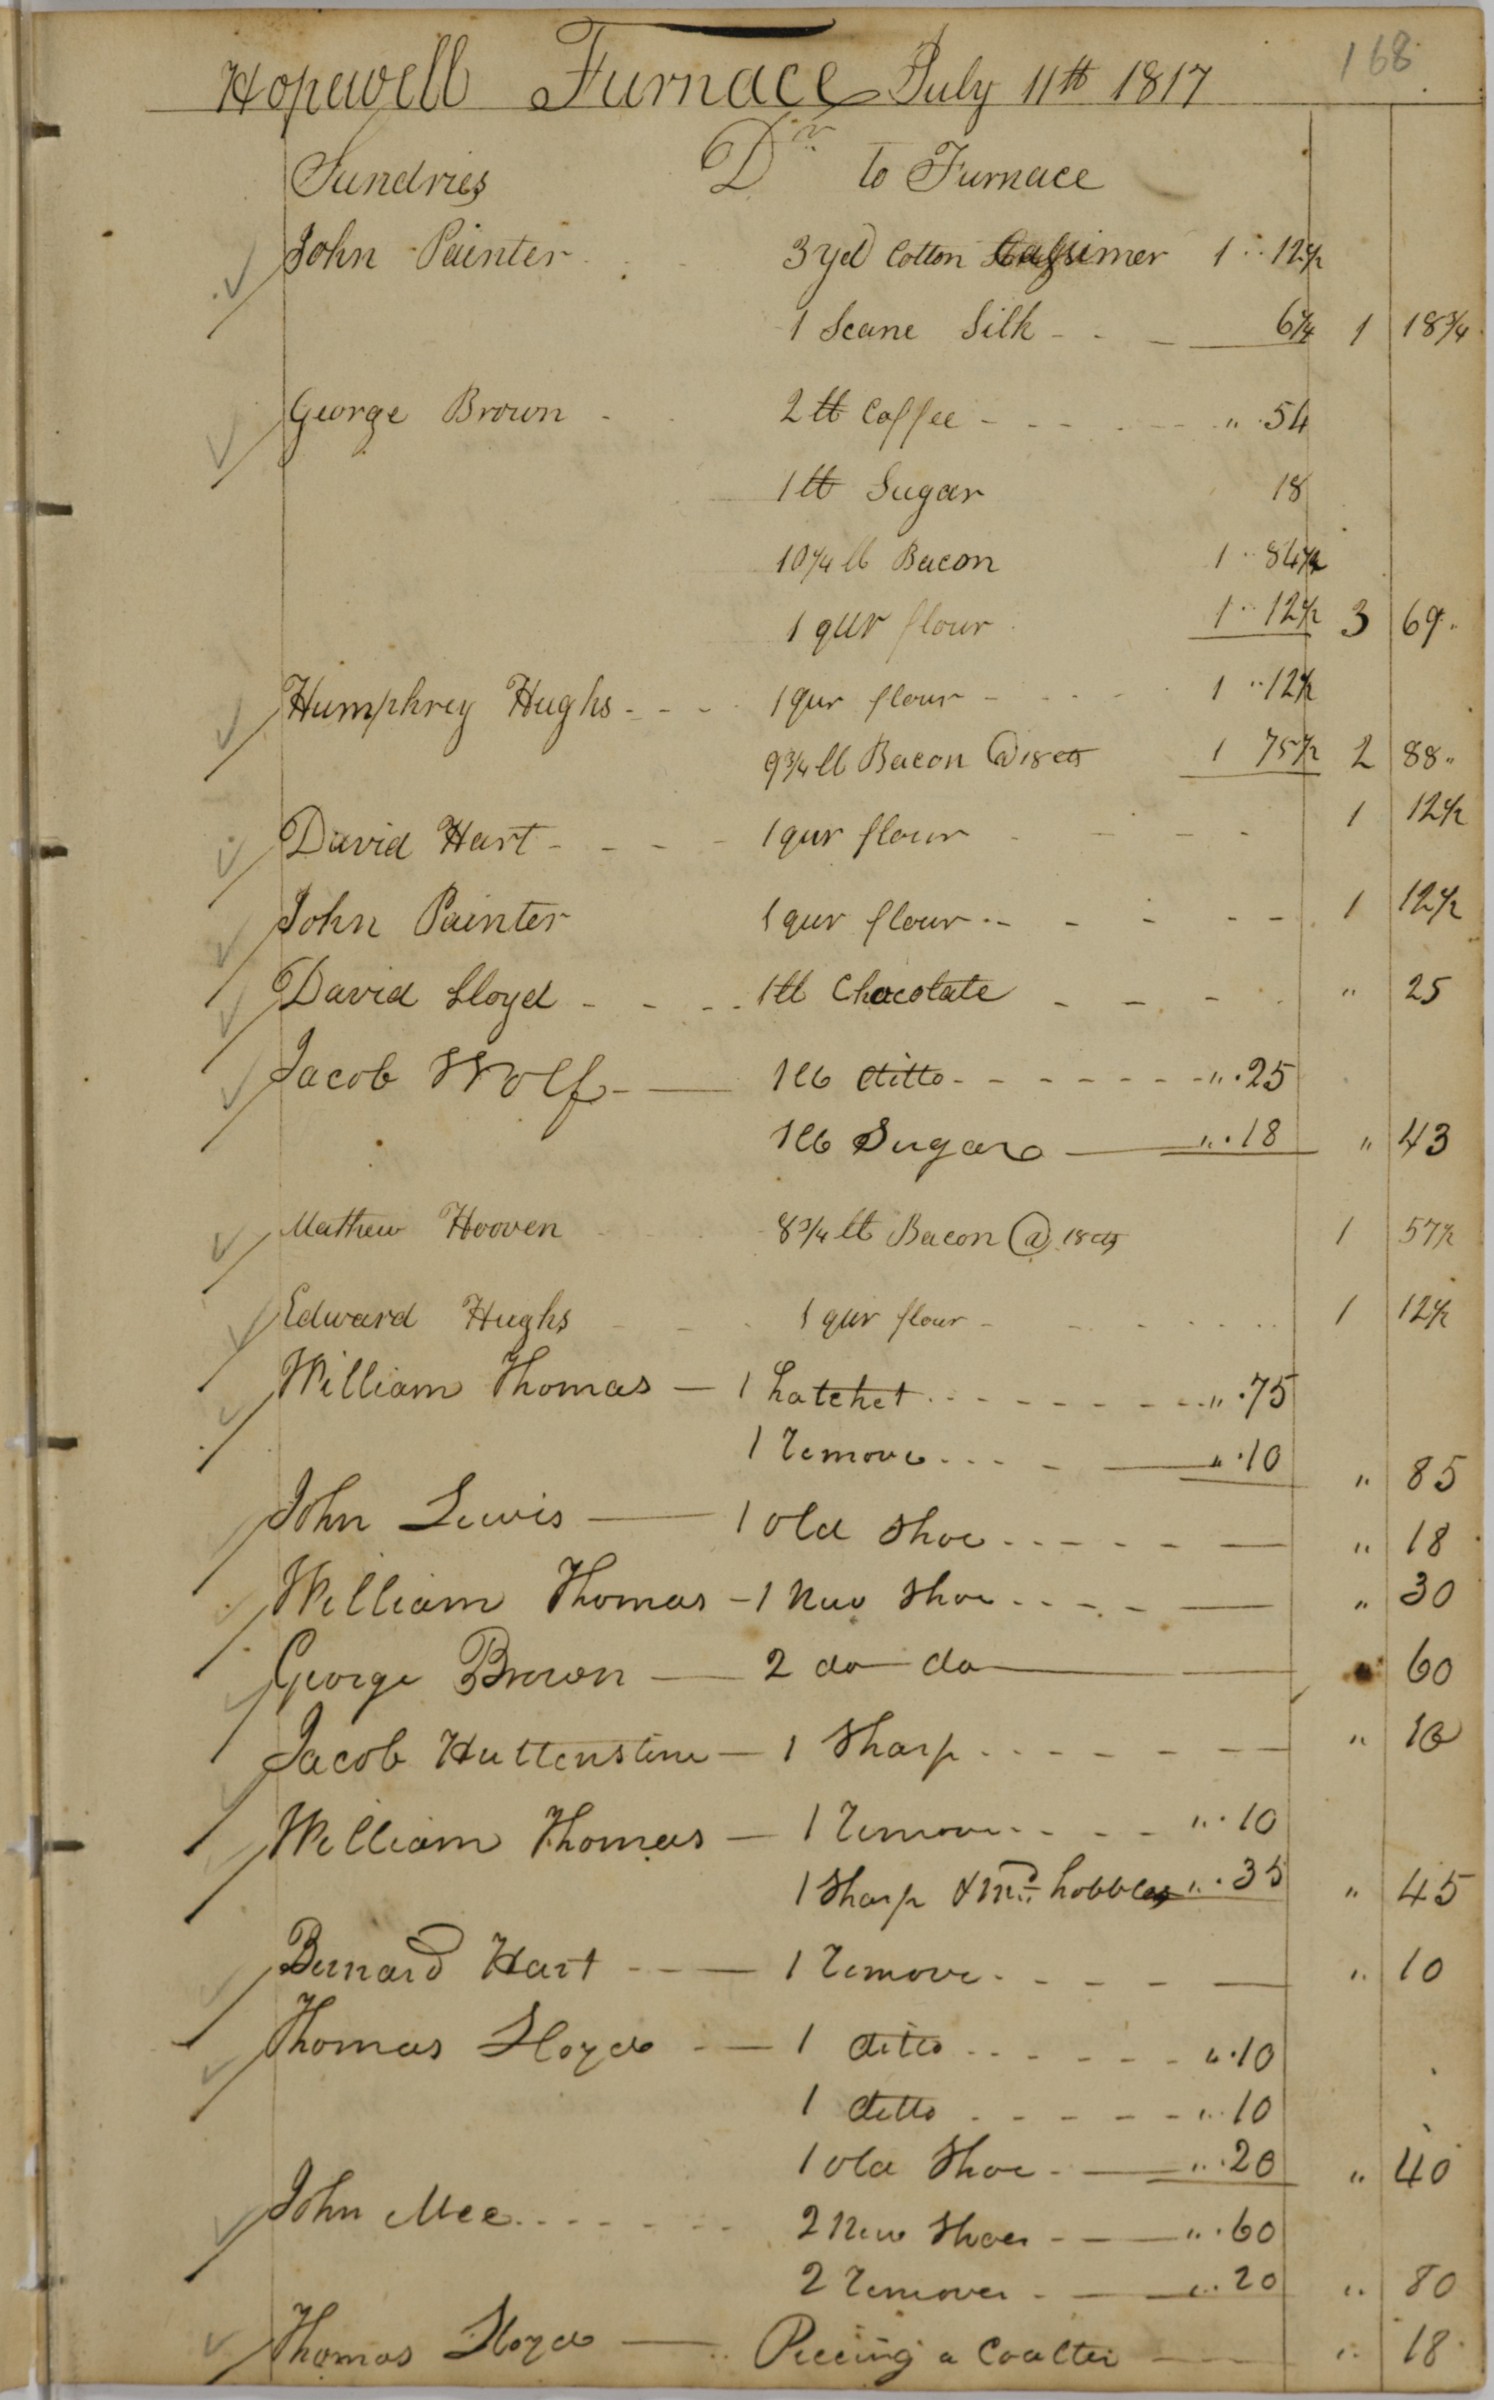 168
Hopewell Furnace July 11th 1817
Sundries Dr to Furnace
John Painter 3 yd Cotton Cassimer 1 12½
1 Scane Silk 6¼ 1 18¾
George Brown 2 lb Coffee " 54
1 lb Sugar 18
10¼ lb Bacon 1 84½
1 qur flour 1 12½ 3 69
Humphrey Hughs 1 qur flour 1 12½
9¾ lb Bacon @ 18 cts 1 75½ 2 88
David Hart 1 qur flour 1 12½
John Painter 1 qur flour 1 12½
David Lloyd 1 lb Chocolate " 25
Jacob Wolf 1 lb ditto " 25
1 lb Sugar " 18 " 43
Mathew Hooven 8¾ lb Bacon @ 18 cts 1 57½
Edward Hughs 1 qur flour 1 12½
William Thomas 1 hatchet " 75
1 remove " 10 " 85
John Lewis 1 old Shoe " 18
William Thomas 1 New Shoe " 30
George Brown 2 do do 60
Jacob Huttenstine 1 Sharp "
William Thomas 1 remove " 10
1 Sharp & md hobbles " 35 " 45
Bernard Hart 1 remove " 10
Thomas Lloyd 1 ditto " 10
1 ditto " 10
1 old Shoe " 20 " 40
John Mee 2 New Shoes " 60
2 removes " 20 " 80
Thomas Lloyd Piecing a Coalter " 18